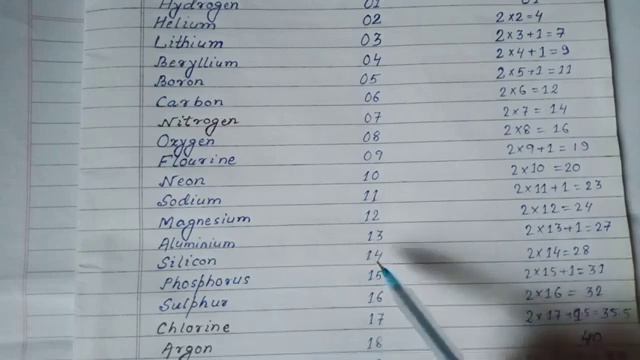 Hydrogen 01 01
Helium 02 2×2=4
Lithium 03 2×3+1=7
Beryllium 04 2×4+1=9
Boron 05 2×5+1=11
Carbon 06 2×6=12
Nitrogen 07 2×7=14
Oxygen 08 2×8=16
Flourine 09 2×9+1=19
Neon 10 2×10=20
Sodium 11 2×11+1=23
Magnesium 12 2×12=24
Aluminium 13 2×13+1=27
Silicon 14 2×14=28
Phosphorus 15 2×15+1=31
Sulphur 16 2×16=32
Chlorine 17 2×17+1.5=35.5
Argon 18 40